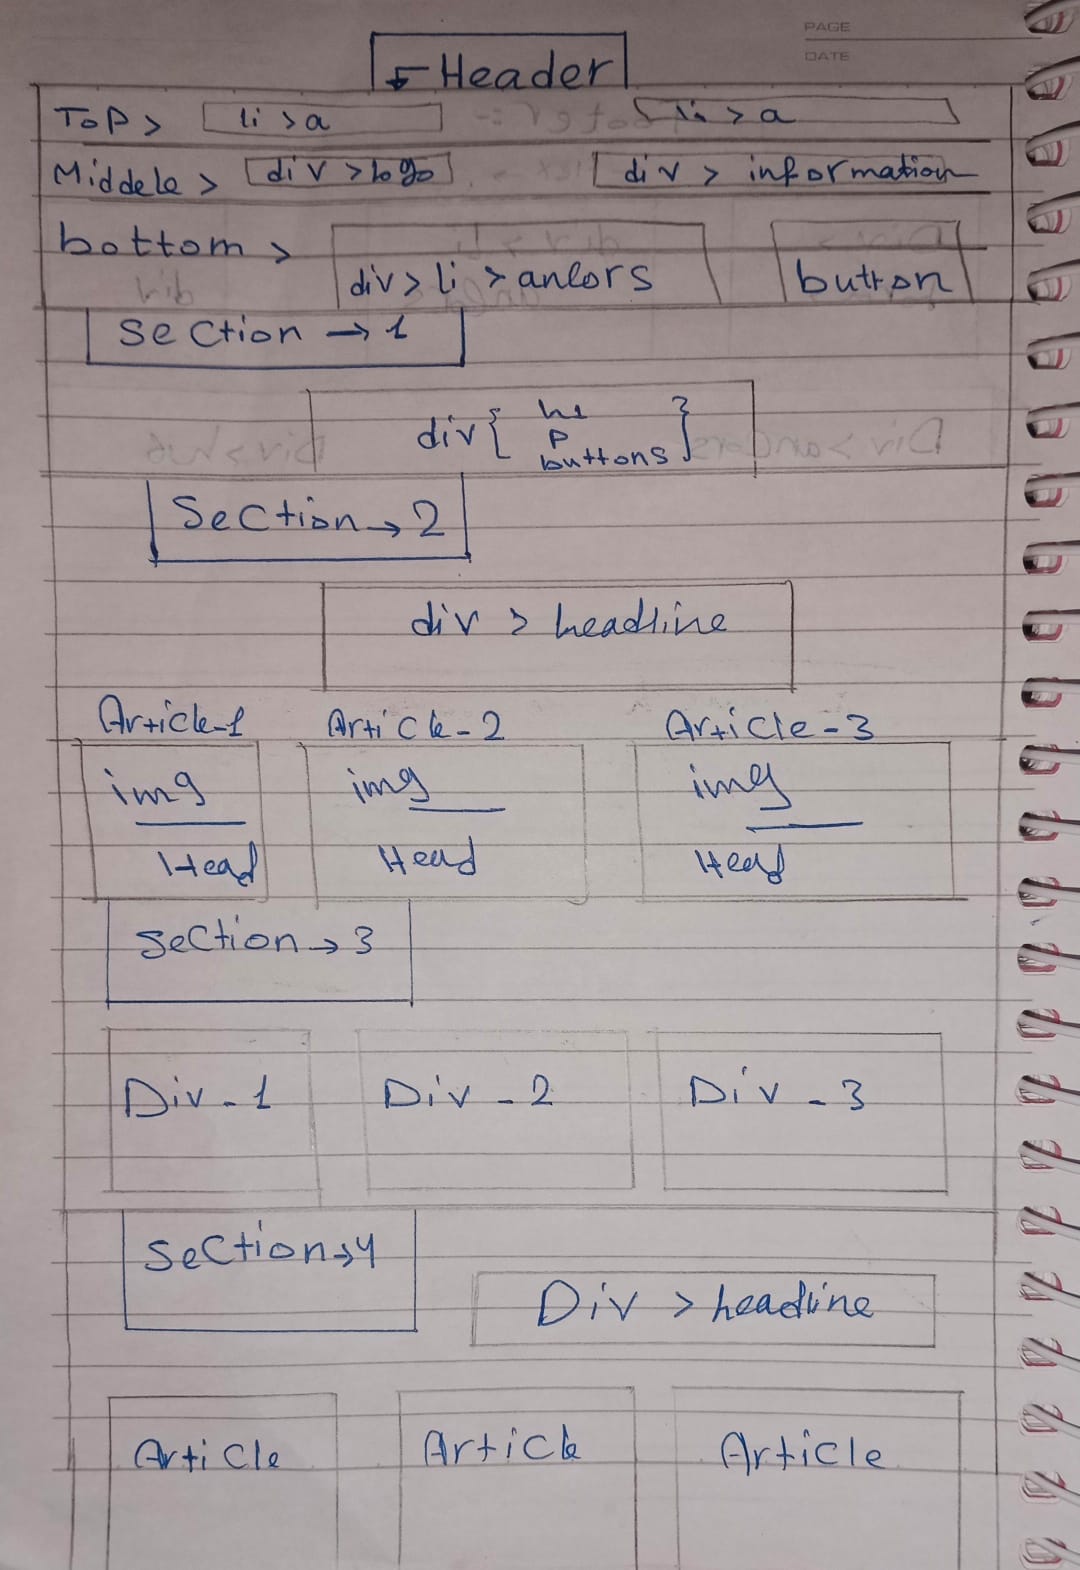 PAGE
DATE
Header
Top > li > a li > a
Middele > div > logo div > information
bottom >
div > li > anlors button
Section → 1
div { h1 }
p
buttons
Section → 2
div > headline
Article-1 Article-2 Article-3
img img img
Head Head Head
Section → 3
Div-1 Div-2 Div-3
Section → 4
Div > headline
Article Article Article